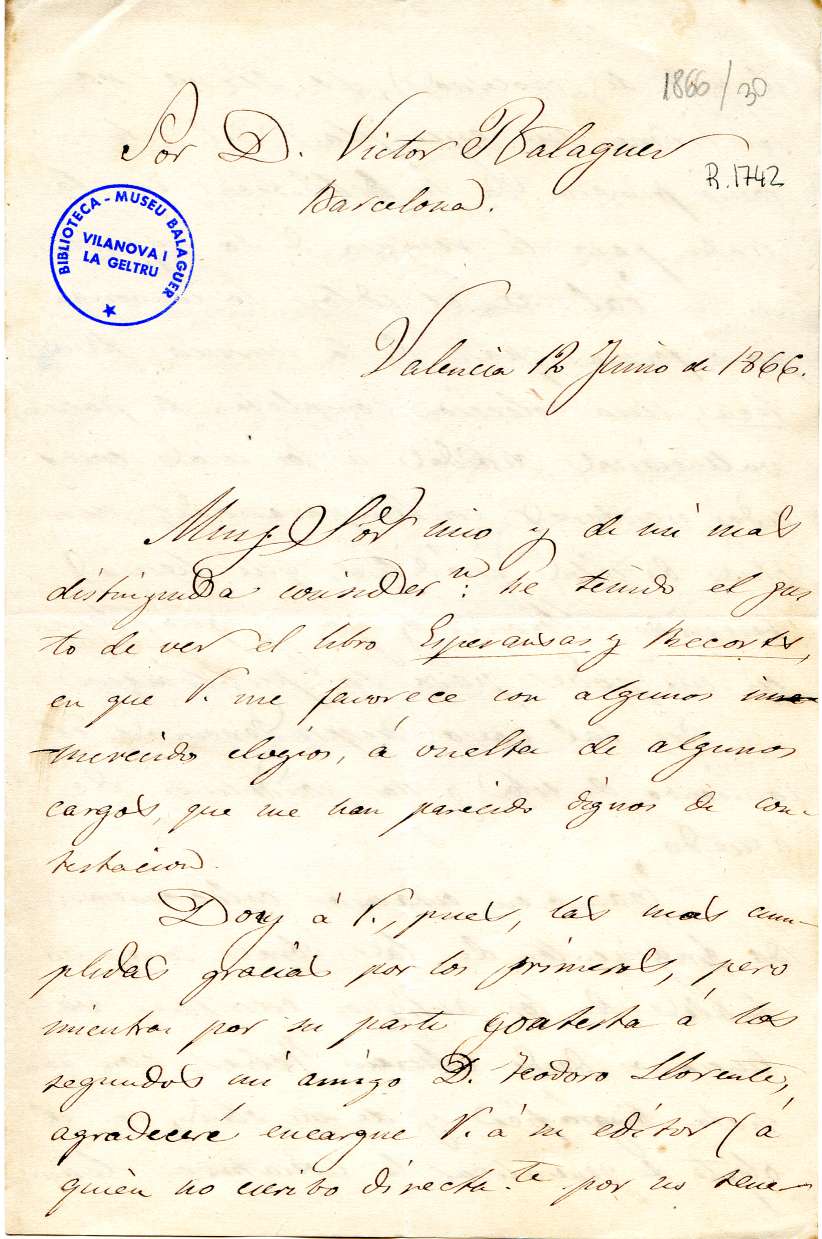 1866/30
Sor D. Victor Balaguer
R.1742
Barcelona.
BIBLIOTECA-MUSEU BALAGUER
VILANOVA I
LA GELTRU
Valencia 12 Junio de 1866.
Muy Sor mio y de mi mas
distinguida consideron: he tenido el gus
to de ver el libro Esperansas y Recorts,
en que V. me favorece con algunos
merecido elogios, á vuelta de algunos
cargos, que me han parecido dignos de con-
testacion.
Doy á V., pues, las mas cum-
plidas gracias por los primeros, pero
mientras por su parte contesta á los
segundos mi amigo D. Teodoro Llorente,
agradeceré encargue V. á su editor (á
quien no escribo directate por no tene-